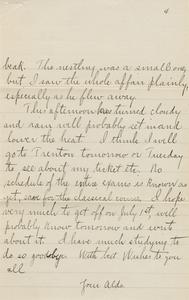 4
beak. The nestling was a small one,
but I saw the whole affair plainly,
especially as he flew away.
This afternoon has turned cloudy
and rain will probably set in and
lower the heat. I think I will
go to Trenton tomorrow or Tuesday
to see about my ticket etc. No
schedule of the exams is known as
yet, save for the classical course. I hope
very much to get off on July 1st, will
probably know tomorrow and write
about it. I have much studying to
do so goodbye. With best wishes to you
all
Your Aldo